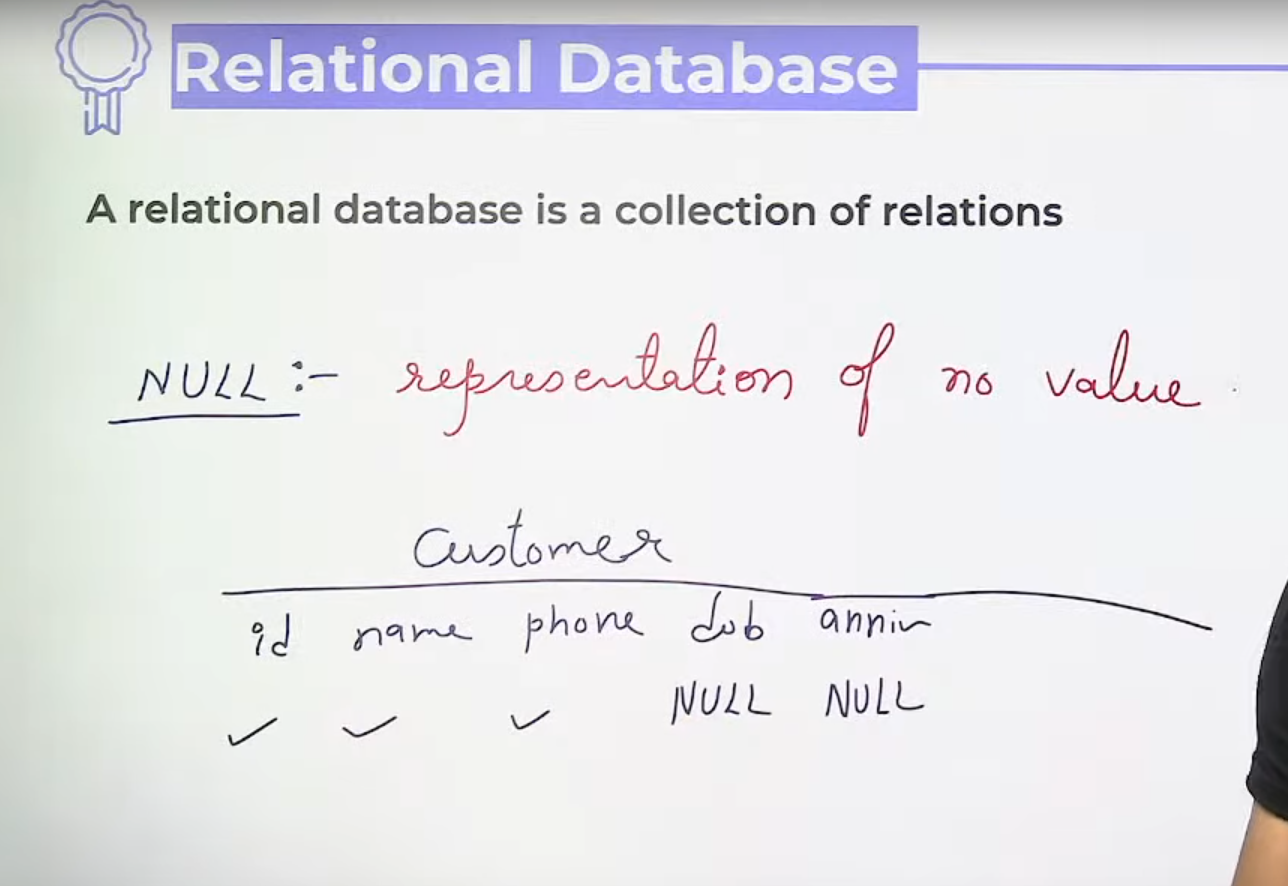 Relational Database
A relational database is a collection of relations
NULL :- representation of no value.
Customer
id name phone dob anniv
✓ ✓ ✓ NULL NULL